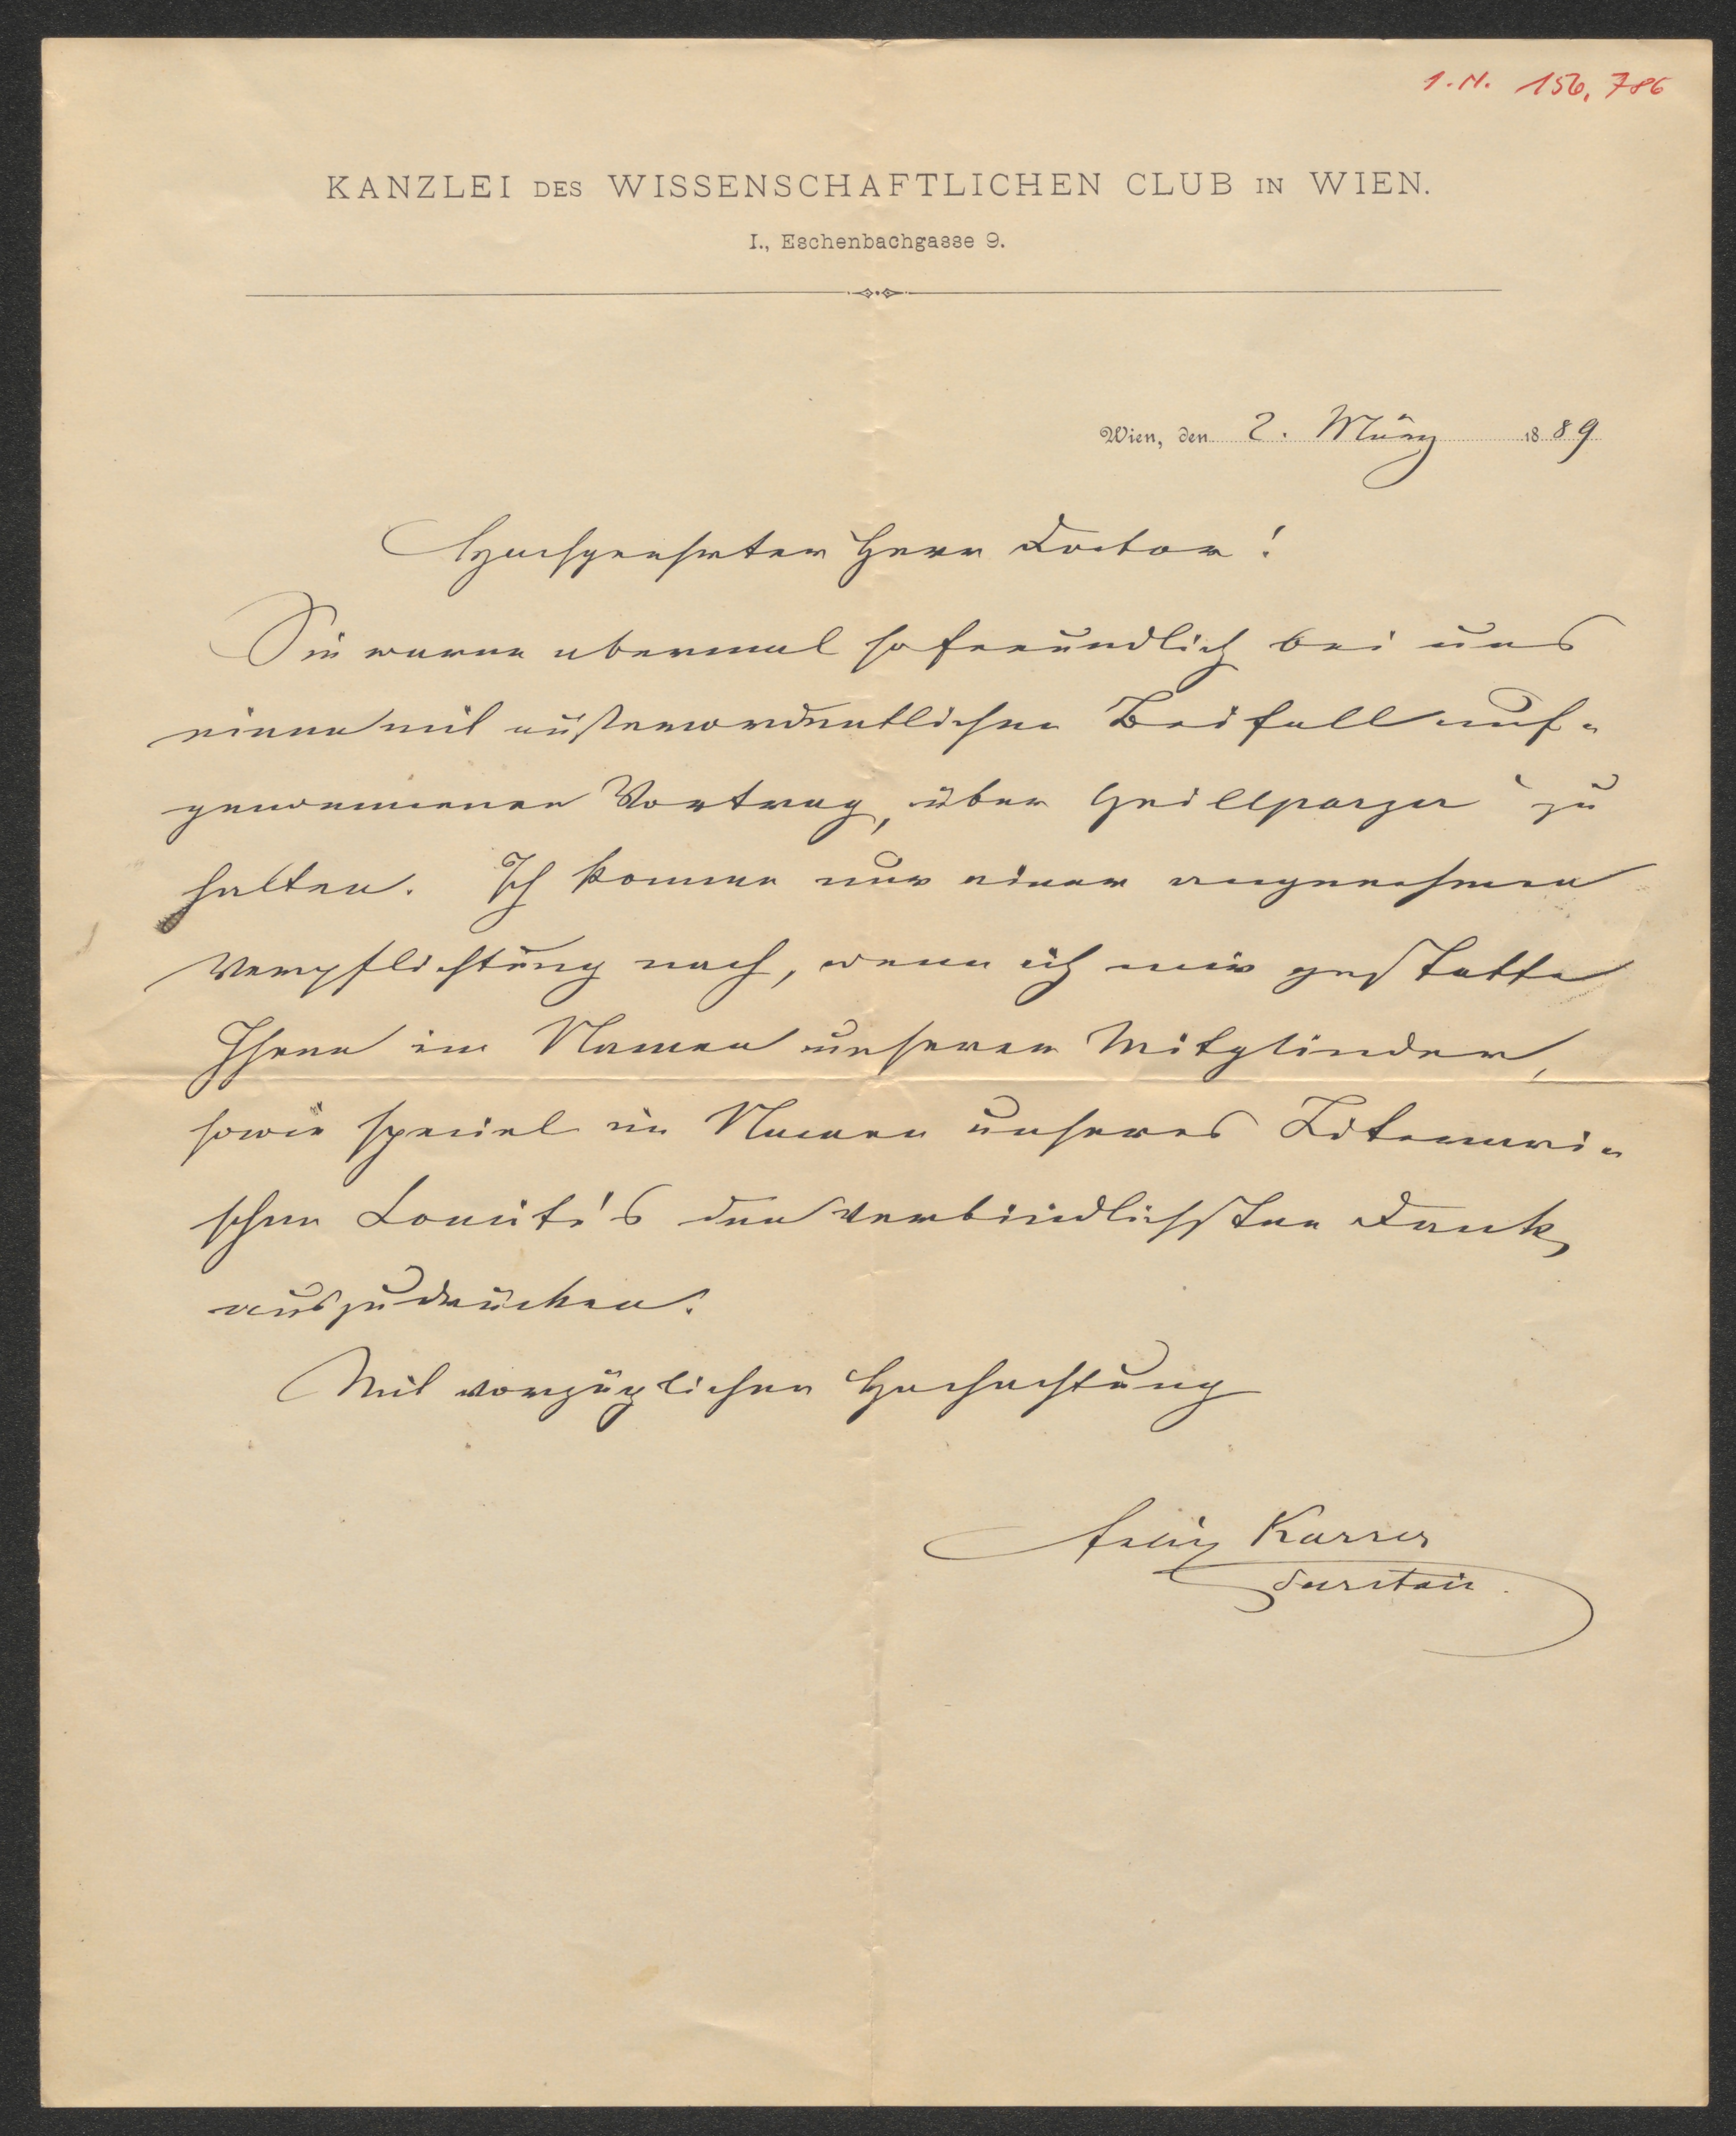 I.N. 156,786
KANZLEI DES WISSENSCHAFTLICHEN CLUB IN WIEN.
I., Eschenbachgasse 9.
Wien, den 2. März 1889
Hochgeehrter Herr Doctor!
Sie waren abermal so freundlich bei uns
einen mit außerordentlichen Beifall auf-
genommenen Vortrag „über Grillparzer“ zu
halten. Ich komme nur einer angenehmen
Verpflichtung nach, wenn ich mir gestatte
Ihnen im Namen unserer Mitglieder,
sowie speciel im Namen unseres Literari-
schen Comité's den verbindlichsten Dank
auszudrücken.
Mit vorzüglicher Hochachtung
Felix Karrer